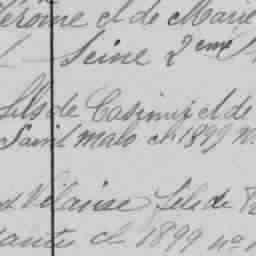 Jérôme et de Marie
Seine 2eme
fils de Casimir et de
Saint Malo cl 1899 n.
Vilaine fils de
cl 1899 no